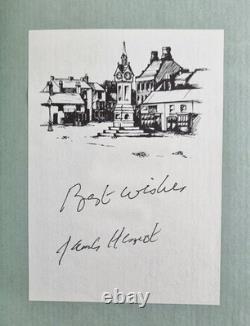 Best wishes
James Herriot
ebay